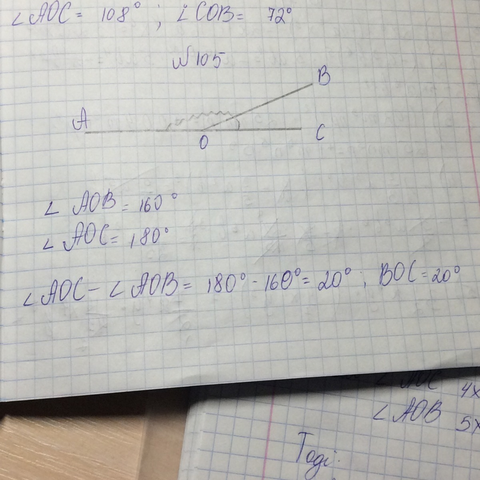 ∠AOC = 108° ; ∠COB = 72°
№105
B
A
O
C
∠ AOB = 160°
∠ AOC = 180°
∠AOC - ∠AOB = 180° - 160° = 20° ; BOC = 20°
∠ AOC 4x
∠ AOB 5x
Тоді: